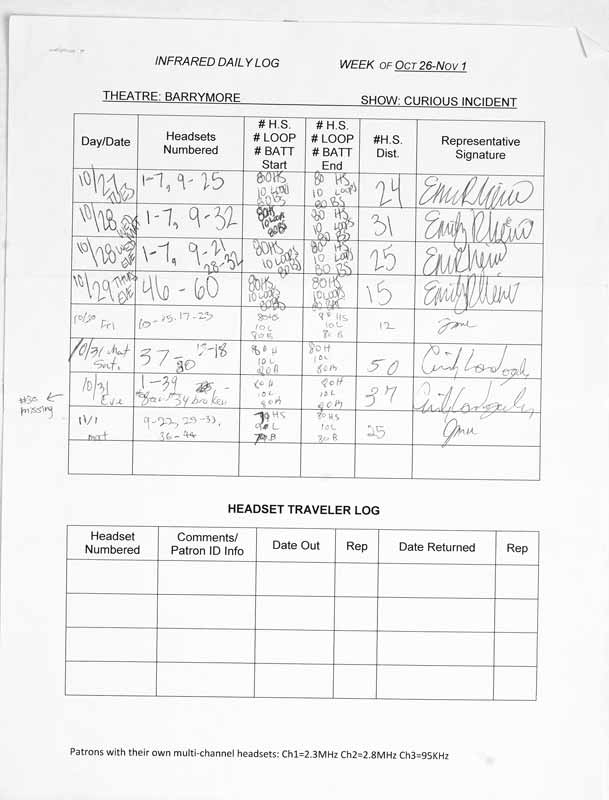 INFRARED DAILY LOG WEEK OF OCT 26-NOV 1
THEATRE: BARRYMORE SHOW: CURIOUS INCIDENT
Day/Date Headsets Numbered # H.S. # LOOP # BATT Start # H.S. # LOOP # BATT End #H.S. Dist. Representative Signature
10/27 TUES 1-7, 9-25 80HS 10 Loops 80 BS 80 HS 10 Loops 80 BS 24
10/28 WED MAT 1-7, 9-32 80HS 10 Loops 80BS 80 HS 10 Loops 80 BS 31
10/28 WED EVE 1-7, 9-21 28-32 80HS 10 Loops 80BS 80HS 10 Loops 80 BS 25
10/29 THURS EVE 46-60 80HS 10 Loops 80BS 80HS 10 Loops 80 BS 15
10/30 Fri 80HS 10L 80B 80 HS 10L 80B 12
10/31 mat Sat. 37-80 80H 10L 80B 80H 10L 80B 50
#30 missing
10/31 Eve 1-39 34 broken 80H 10L 80B 80H 10L 80B 37
11/1 mat 36-44 80 HS 10L 80B 25
HEADSET TRAVELER LOG
Headset Numbered Comments/ Patron ID Info Date Out Rep Date Returned Rep
Patrons with their own multi-channel headsets: Ch1=2.3MHz Ch2=2.8MHz Ch3=95KHz